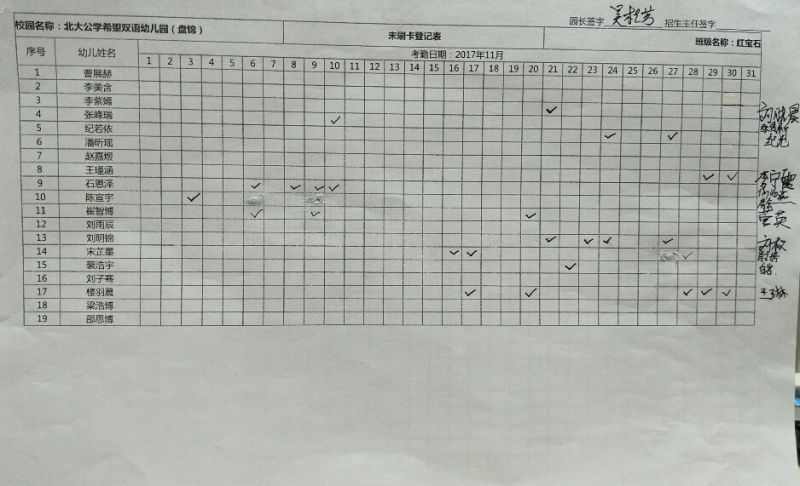 园长签字 招生主任签字
校园名称：北大公学希望双语幼儿园（盘锦） 未刷卡登记表 班级名称：红宝石
序号 幼儿姓名 考勤日期：2017年11月
1 2 3 4 5 6 7 8 9 10 11 12 13 14 15 16 17 18 19 20 21 22 23 24 25 26 27 28 29 30 31
1 曹展赫
2 李美含
3 李紫嫣
4 张峰瑞 ✓ ✓
5 纪若依 ✓ ✓
6 潘昕瑶
7 赵嘉煜
8 王瑾涵 ✓ ✓
9 石恩泽 ✓ ✓ ✓ ✓
10 陈宣宇 ✓
11 崔智博 ✓ ✓ ✓
12 刘雨辰
13 刘明锦 ✓ ✓ ✓ ✓
14 宋芷墨 ✓ ✓ ✓
15 裴浩宇 ✓
16 刘子骞
17 楼羽晨 ✓ ✓ ✓ ✓ ✓
18 梁浩博
19 邵思博